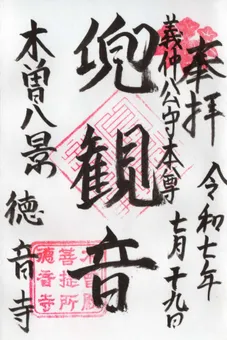 奉拝
令和七年
七月十九日
義仲公守本尊
兜観音
木曽八景
徳音寺
菩提所
徳音寺